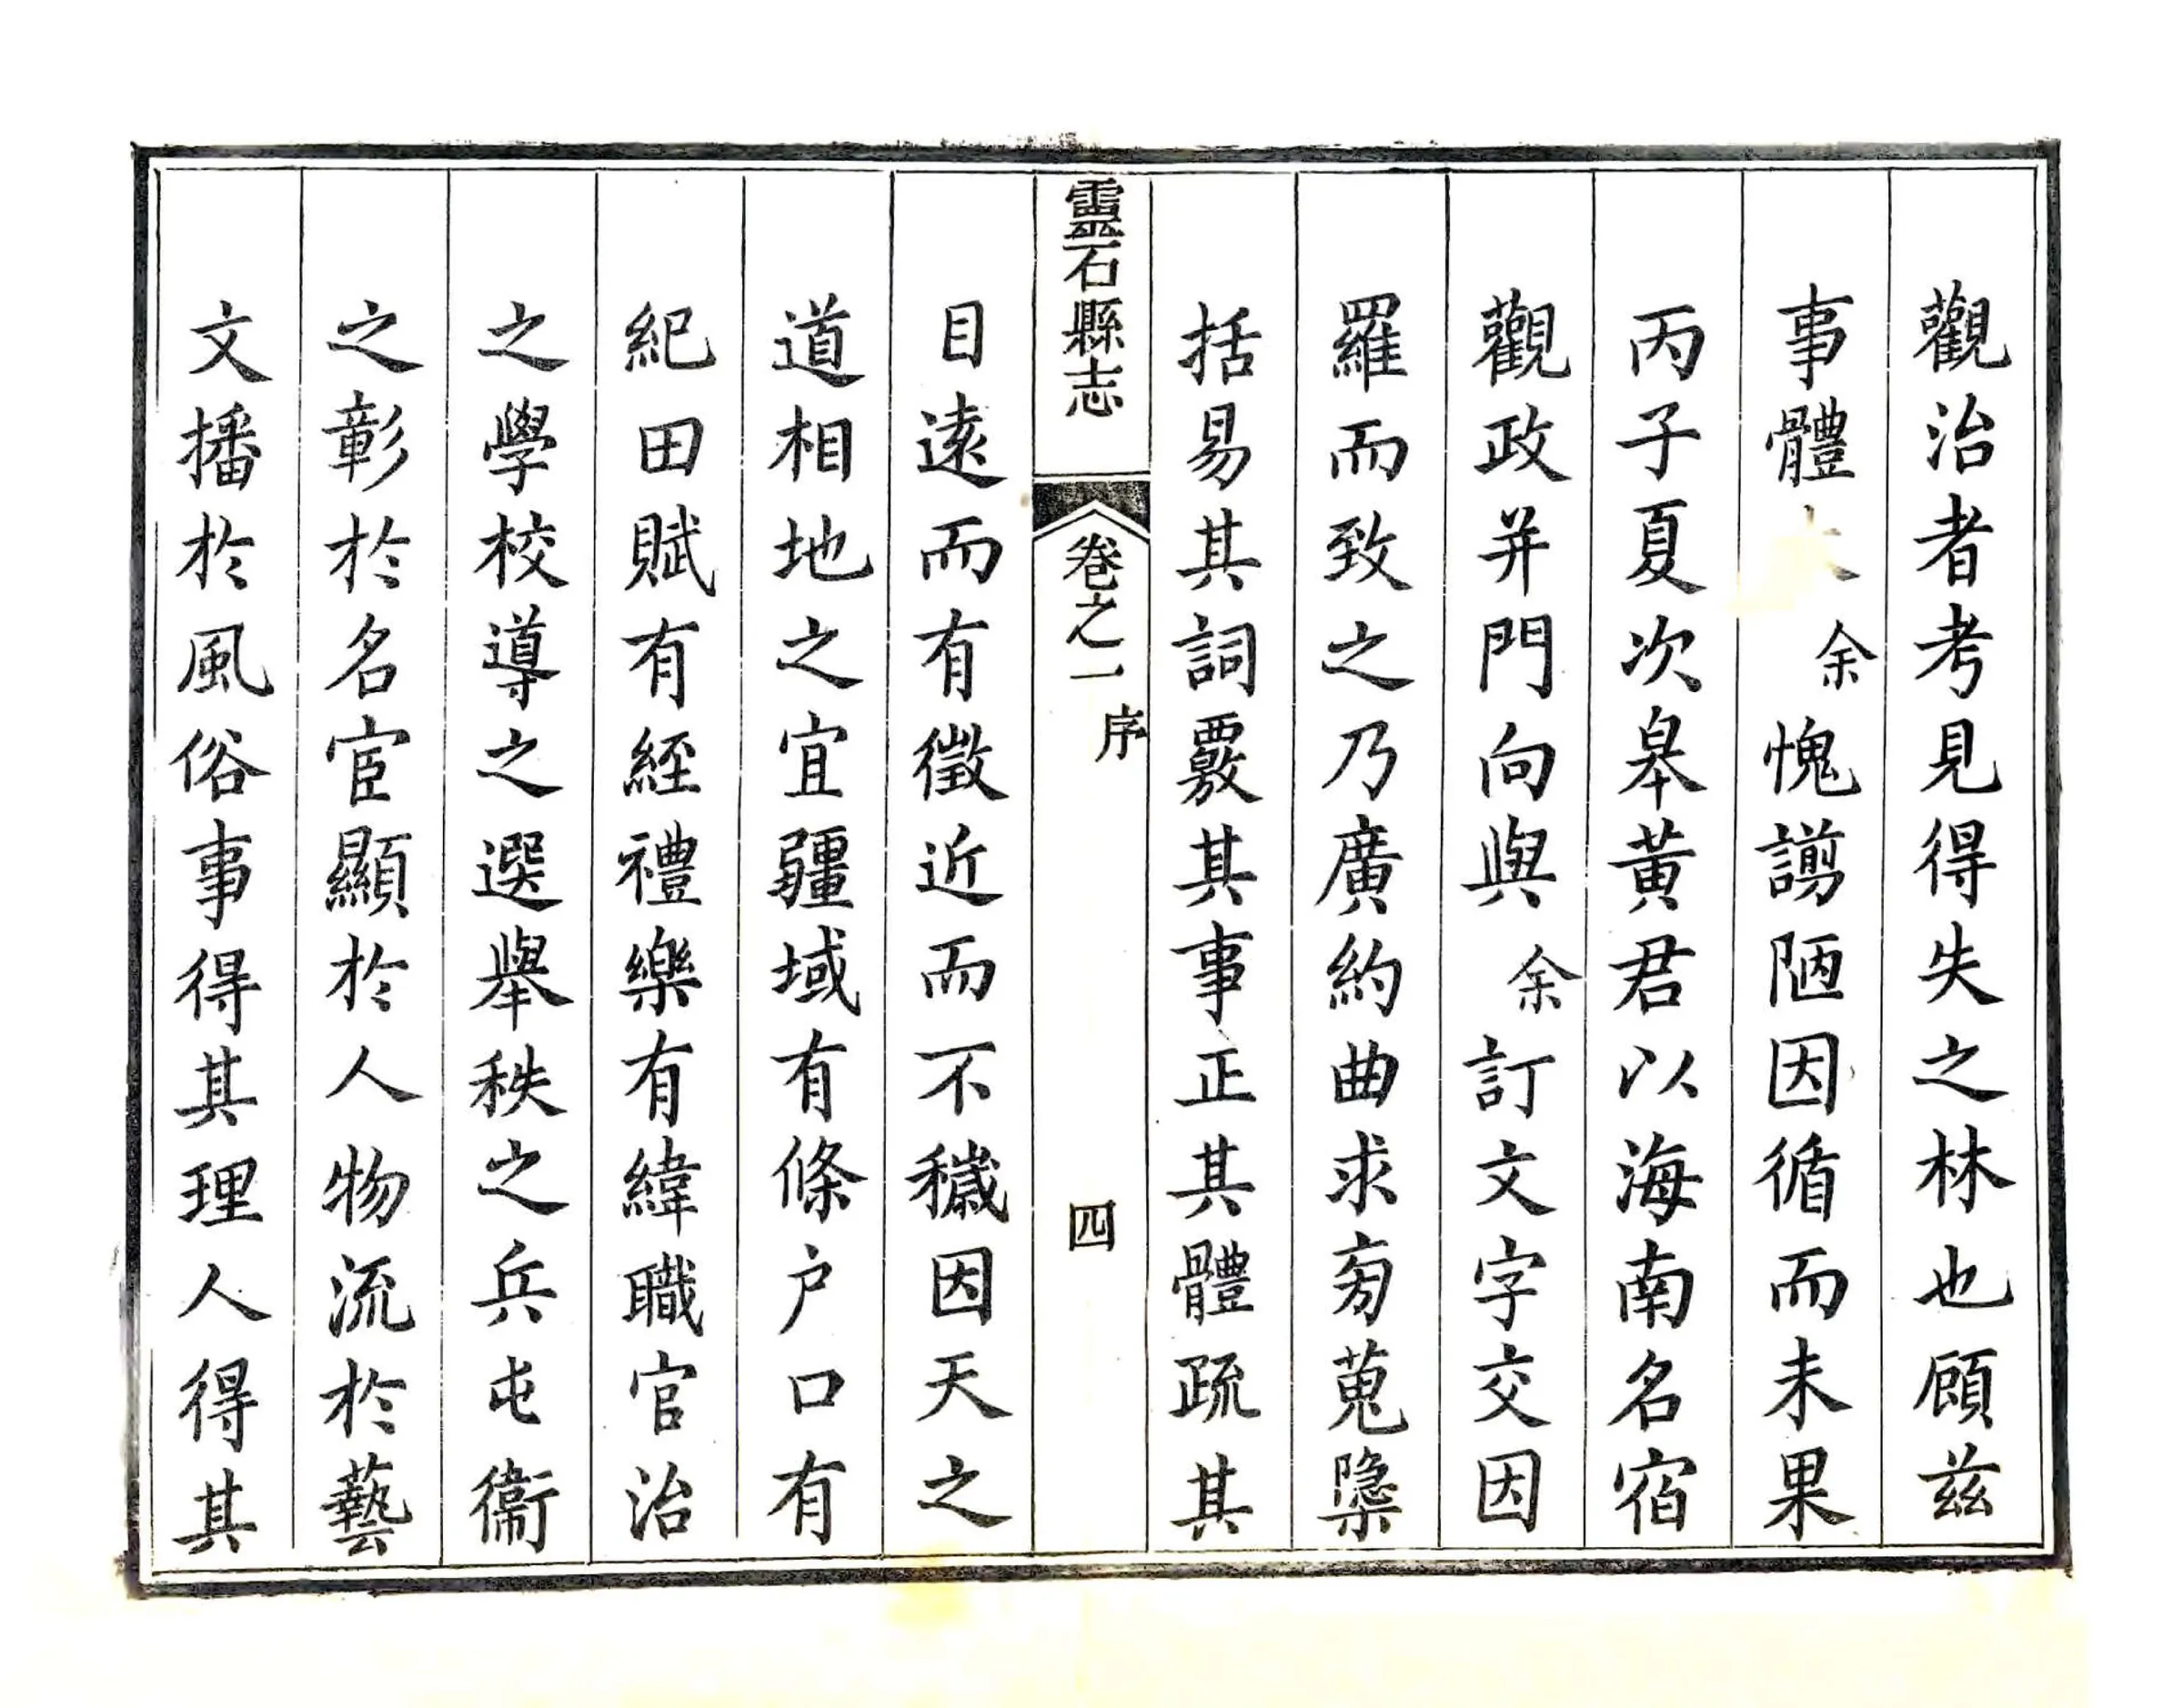 觀治者考見得失之林也顧茲
事體余愧謭陋因循而未果
丙子夏次皋黃君以海南名宿
觀政并門向與余訂文字交因
羅而致之乃廣約曲求匇蒐隱
括易其詞覈其事正其體疏其
靈石縣志 卷之一 序 四
目遠而有徵近而不穢因天之
道相地之宜疆域有條户口有
紀田賦有經禮樂有緯職官治
之學校導之選舉秩之兵屯衞
之彰於名宦顯於人物流於藝
文播於風俗事得其理人得其